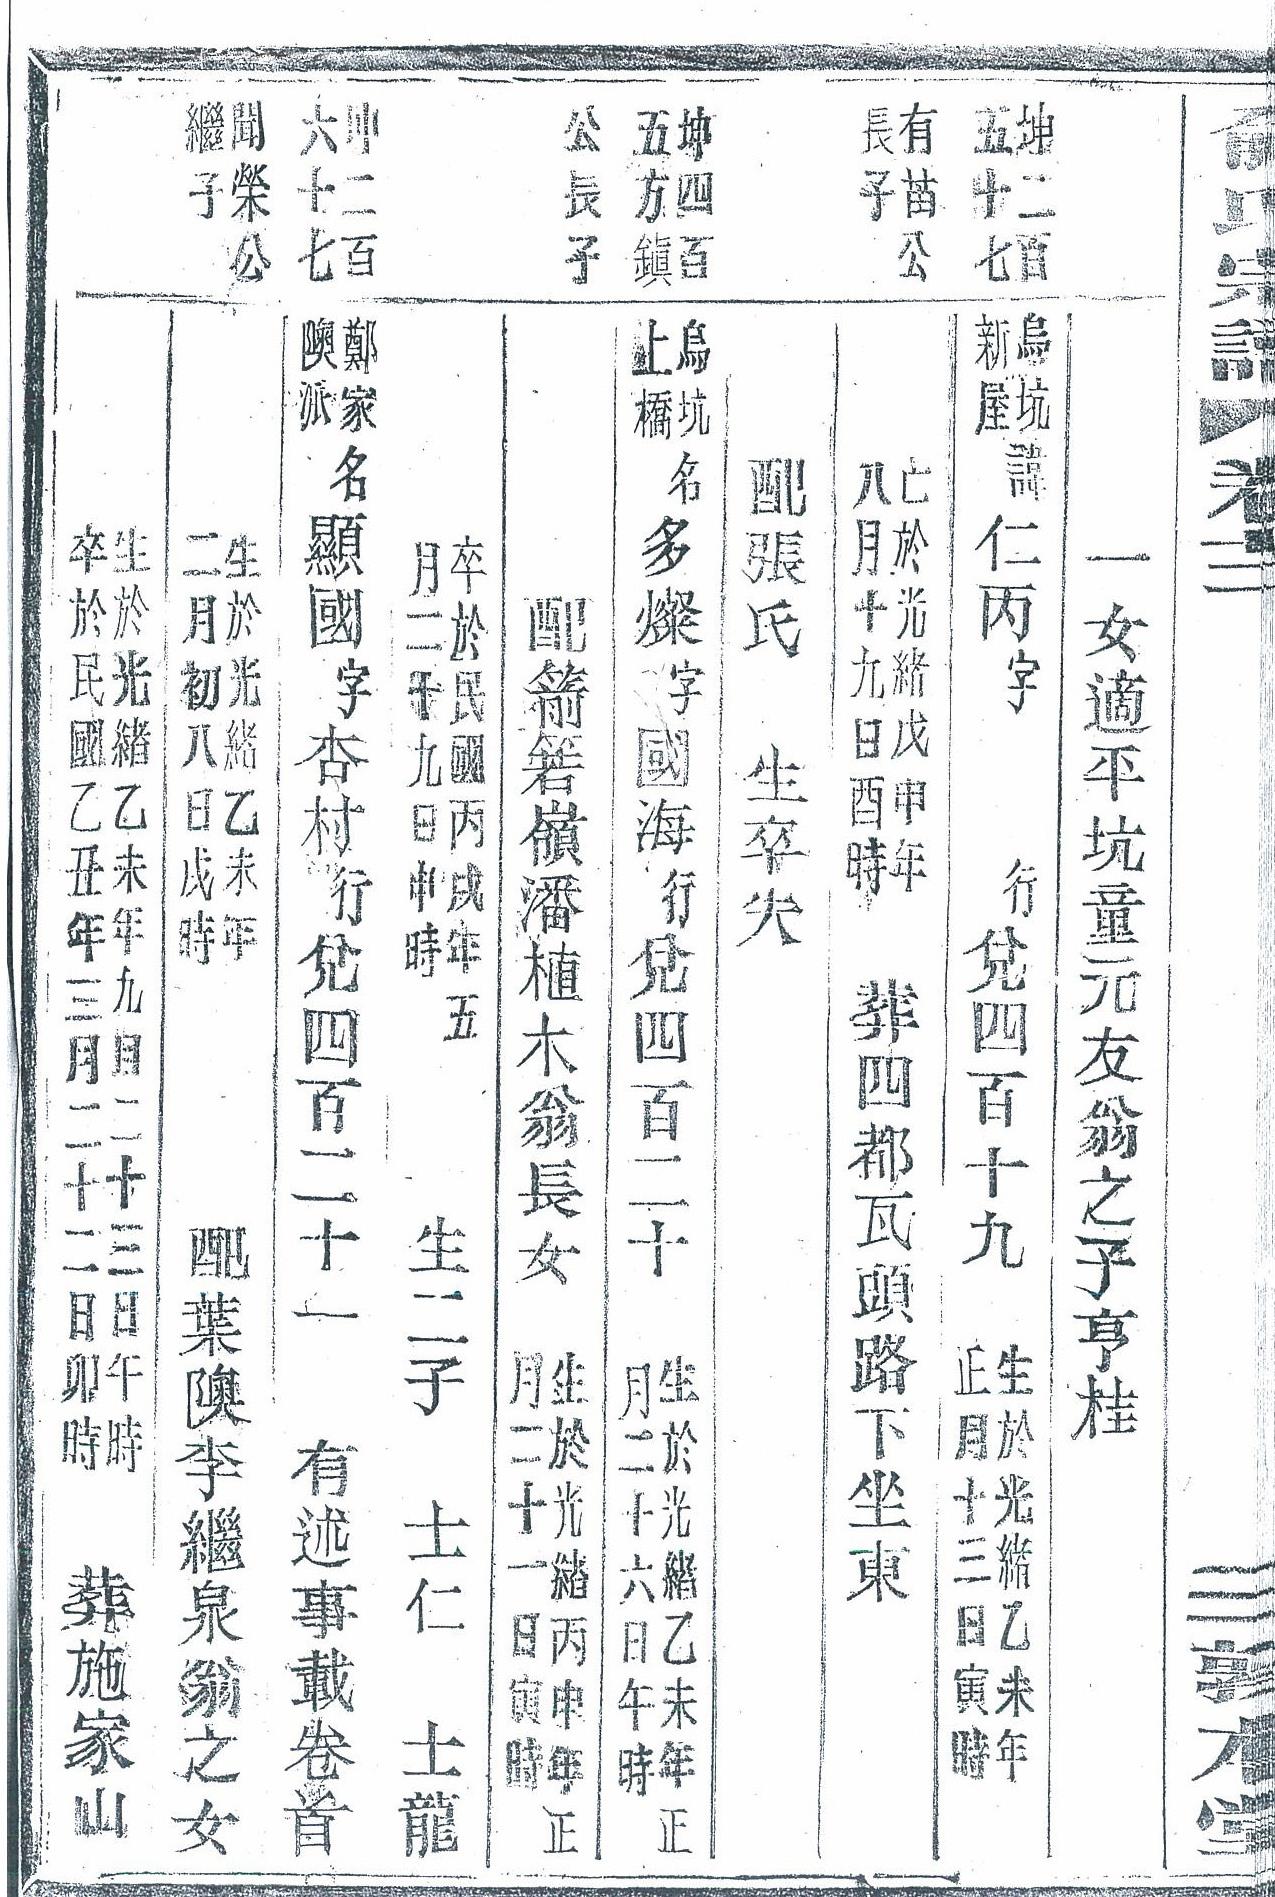 俞氏宗譜 卷三 敦本堂
一女適平坑童元友翁之子亨桂
坤二百五十七
烏坑新屋 諱仁丙字 行兌四百十九 生於光緒乙未年正月十三日寅時
有苗公長子
亡於光緒戊申年八月十九日酉時 葬四都瓦頭路下坐東
配張氏 生卒失
坤四百五方鎮
烏坑上橋 名多燦字國海行兌四百二十 生於光緒乙未年正月二十六日午時
公長子
配箬嶺潘植木翁長女 生於光緒丙申年正月二十一日寅時
卒於民國丙戌年五月二十九日申時 生二子 士仁 士龍
坤二百六十七
鄭家隩派 名顯國字杏村行兌四百二十一 有述事載卷首
聞榮公繼子
生於光緒乙未年二月初八日戌時 配葉隩李繼泉翁之女
生於光緒乙未年九月二十三日午時卒於民國乙丑年三月二十二日卯時 葬施家山